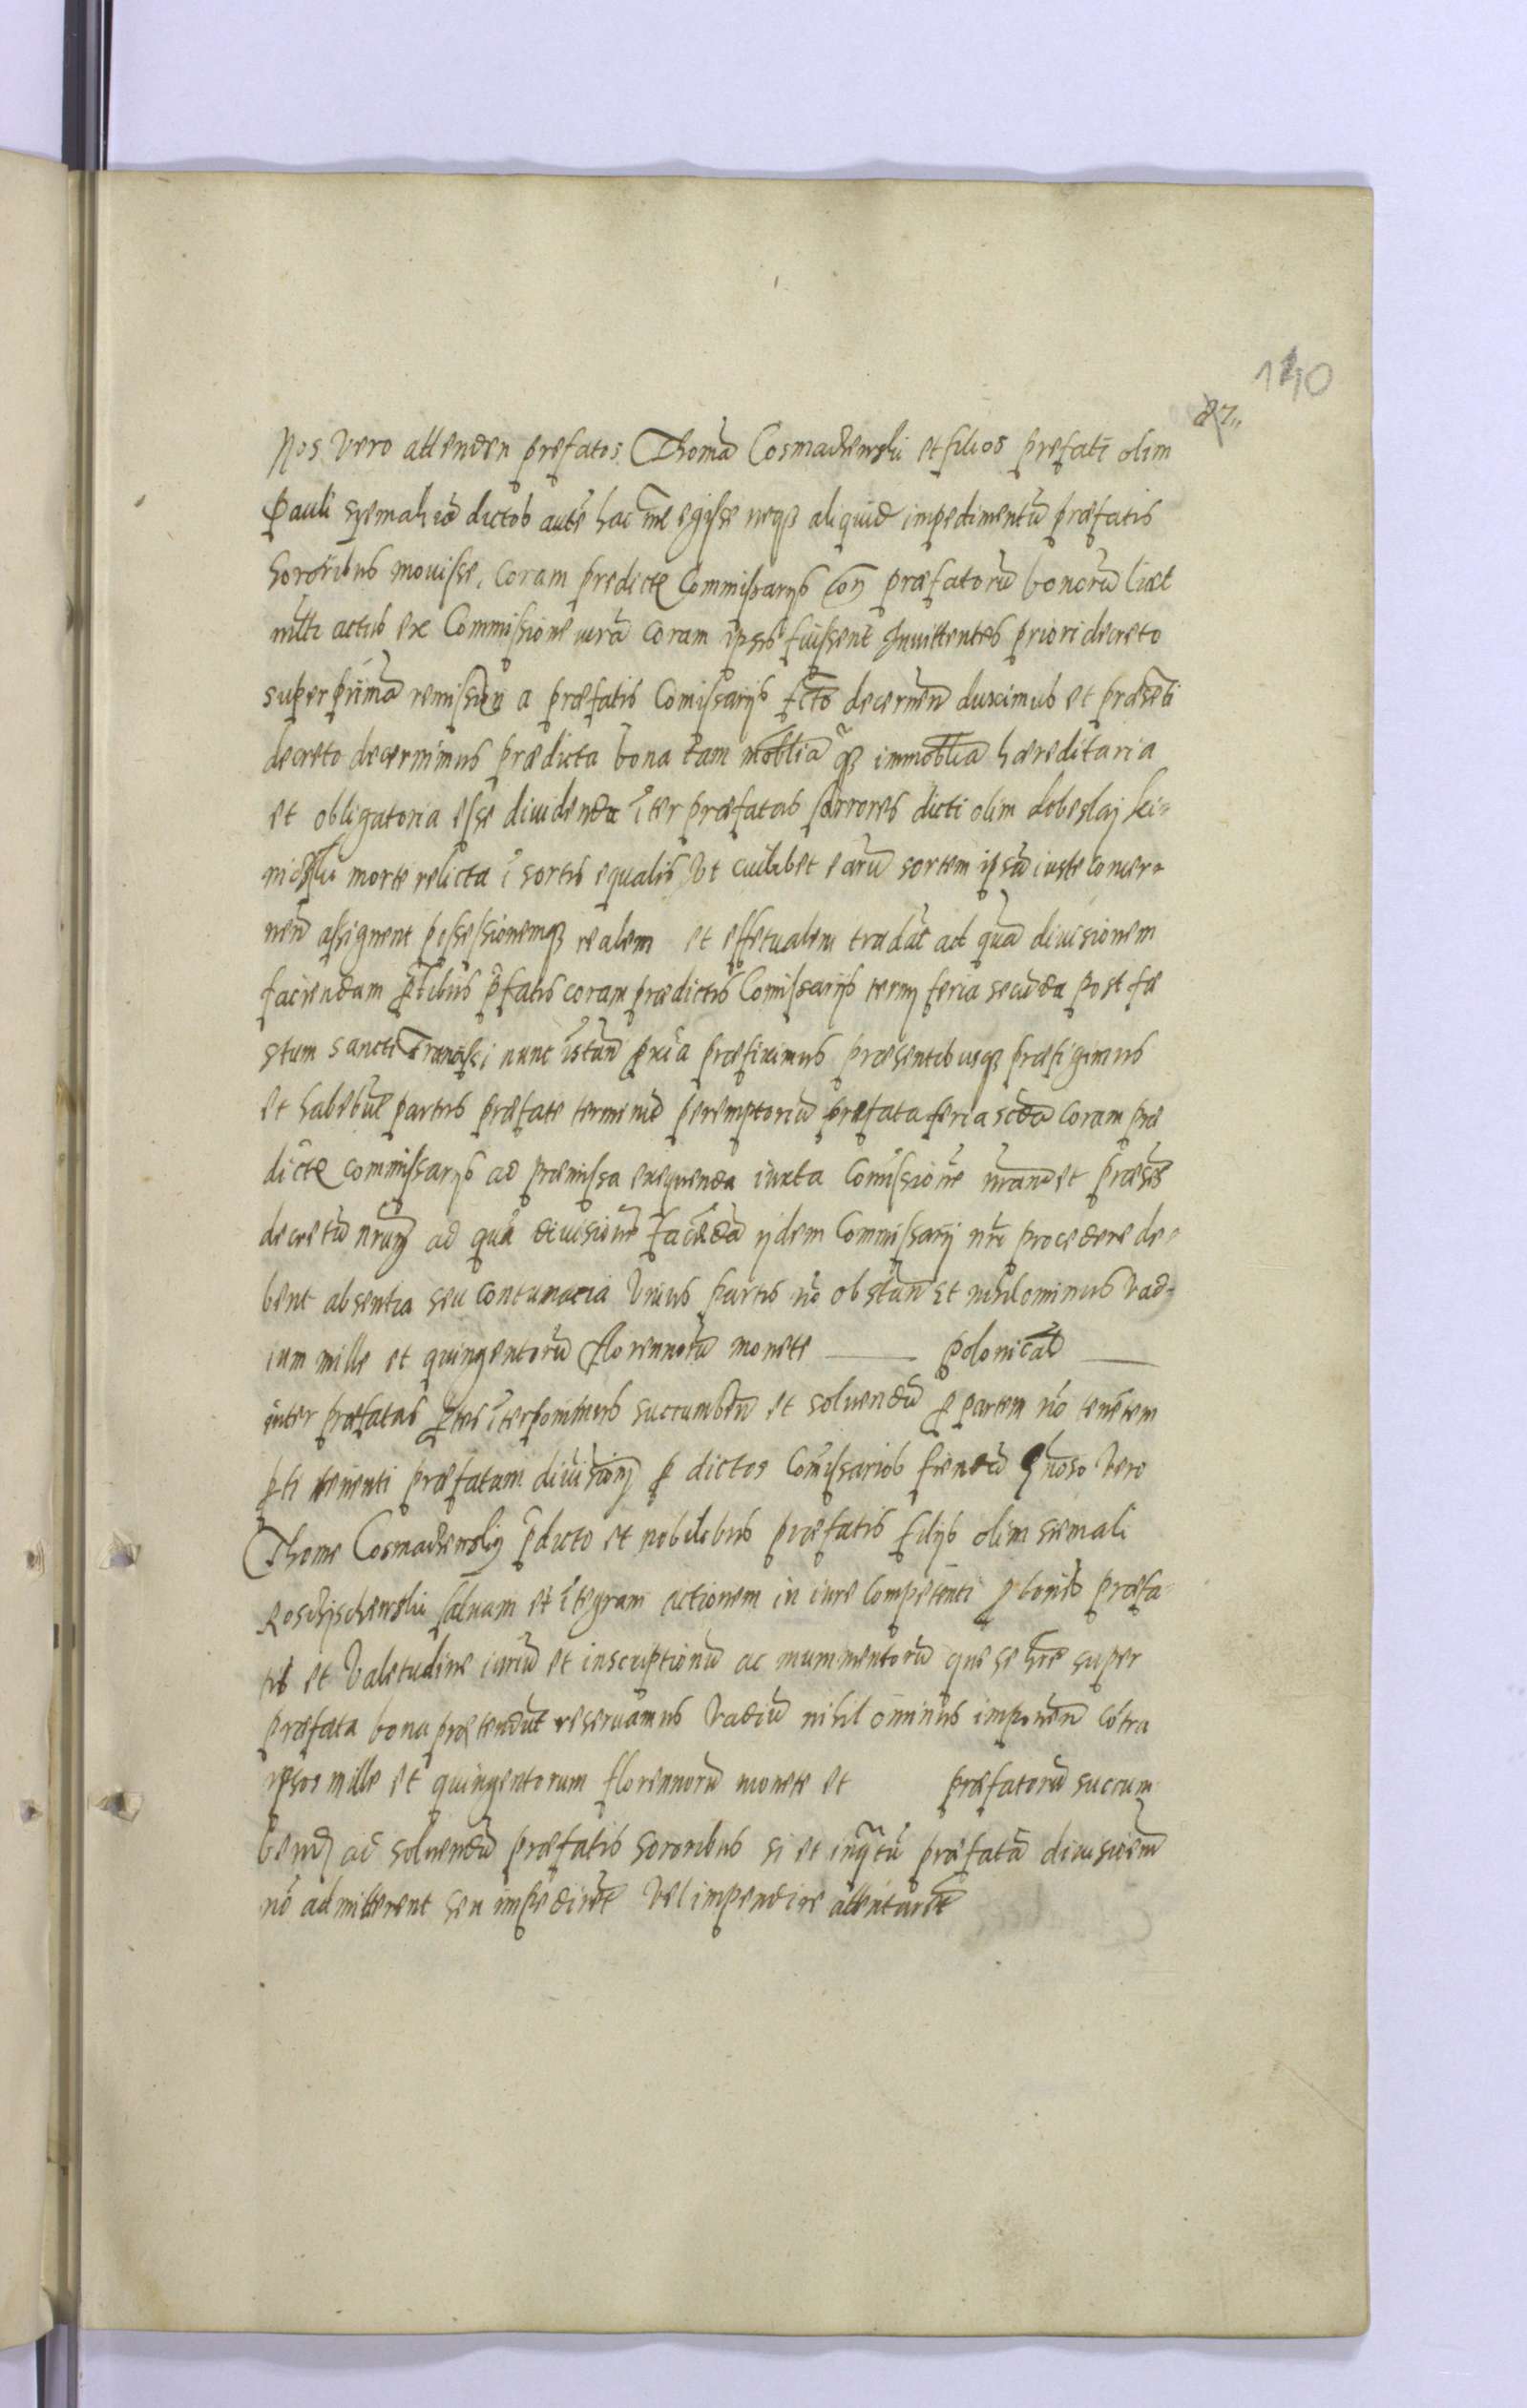 140
87"
Nos vero attenden præfatos Thomā Cosmaczewski et filios præfati olim
Pauli Syemak iā dictos autē hac īre egisse neqз aliquid impedimentū præfatis
sororibus mouisse, coram predictę Commissarijs præfatorū bonorū licet
actus ex Commissione nrā coram ipsis fuissent Innittentes priori decreto
super primā remissionē a præfatis Comissarijs fcto decernen duximus et præsēti
decreto decernimus prædicta bona tam moblia qз immoblia hæreditaria
et obligatoria esse diuidenda īter præfatas sorrores dicti olim dobeslaj
morte relicta ī sortis equalis Vt cuilibet earū sortem ipsū iuste concer=
nen assignent possessionemqз realem et effetualem tradāt ad quā diuisionem
faciendam ptibus pfatis coram prædictis Comissarijs feria secūda post fæ
stum sancti Francisci nunc īstan pxīa præfiximus præsentibusqз præfigimus
et habebūt partes præfate terminū peremptoriū præfata feria scdā coram præ
dictę commissarijs ad præmissa exequenda iuxta Comissionē nram et præsēs
decretū nrum ad quā diuisionē faciēdā ijdem Commissarij nri procedere de=
bent absentia seu contumacia Vnius partis nō obstan Et nihilominus Vad=
ium mille et quingentorū florennorū monete — polonicāl —
inter præfatas ptes īterponimus succumben et soluendū p partem nō tenētem
pti tenenti præfatam diuisionē p dictos Comissarios fiendū gnoso Vero
Thome Cosmaczewskij pdicto et nobilibus præfatis filijs olim siemak
saluam et ītegram actionem in iure competenti p bonis præfa=
tis et Valetudine iuriū et inscriptionū ac mummentorū que se hre super
præfata bona prætendūt reseruamus Vadiū nihil ominus imponen cōtra
ipsos mille et quingentorum florennorū monete et præfatorū succum
bend ac soluendū præfatis sororibus si et inqtū præfatā diuisiōem
nō admitterent seu impedirēt Vel impendire attentarēt